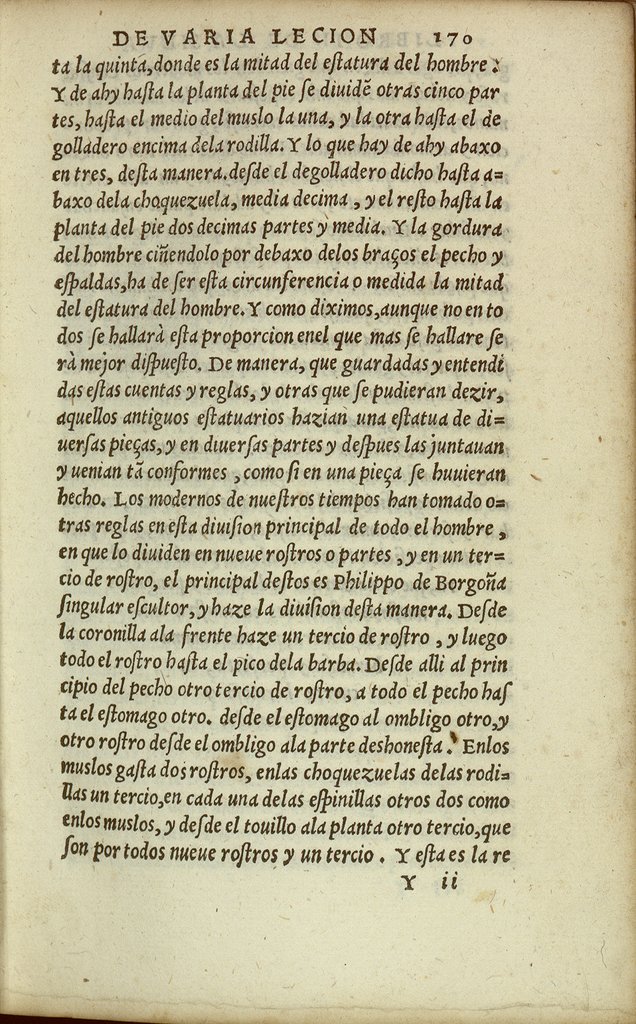 DE VARIA LECION 170
ta la quinta,donde es la mitad del estatura del hombre :
Y de ahy hasta la planta del pie se diuidẽ otras cinco par
tes, hasta el medio del muslo la una, y la otra hasta el de
golladero encima dela rodilla. Y lo que hay de ahy abaxo
en tres, desta manera.desde el degolladero dicho hasta a=
baxo dela choquezuela, media decima , y el resto hasta la
planta del pie dos decimas partes y media. Y la gordura
del hombre ciñendolo por debaxo delos braços el pecho y
espaldas,ha de ser esta circunferencia o medida la mitad
del estatura del hombre. Y como diximos,aunque no en to
dos se hallarà esta proporcion enel que mas se hallare se
rà mejor dispuesto. De manera, que guardadas y entendi
das estas cuentas y reglas, y otras que se pudieran dezir,
aquellos antiguos estatuarios hazian una estatua de di=
uersas pieças,y en diuersas partes y despues las juntauan
y uenian tã conformes ,como si en una pieça se huuieran
hecho. Los modernos de nuestros tiempos han tomado o=
tras reglas en esta diuision principal de todo el hombre ,
en que lo diuiden en nueue rostros o partes ,y en un ter=
cio de rostro, el principal destos es Philippo de Borgoña
singular escultor, y haze la diuision desta manera. Desde
la coronilla ala frente haze un tercio de rostro , y luego
todo el rostro hasta el pico dela barba. Desde alli al prin
cipio del pecho otro tercio de rostro, a todo el pecho has
ta el estomago otro. desde el estomago al ombligo otro,y
otro rostro desde el ombligo ala parte deshonesta. Enlos
muslos gasta dos rostros, enlas choquezuelas delas rodi=
llas un tercio,en cada una delas espinillas otros dos como
enlos muslos, y desde el touillo ala planta otro tercio,que
son por todos nueue rostros y un tercio . Y esta es la re
Y ii